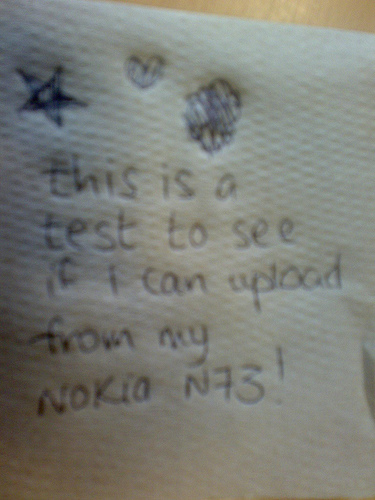 this is a
test to see
if i can upload
from my
NOKia N73!